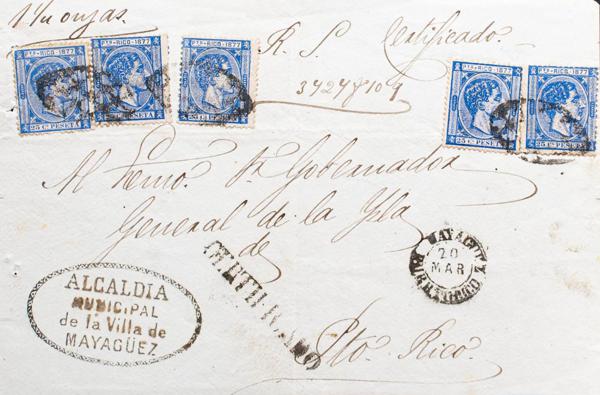 R. S. Certificado.
PTO-RICO-1877
25 Cs PESETA
PTO-RICO-1877
PESETA
PTO-RICO-1877
25 Cs PESETA
PTO-RICO-1877
25 Cs PESETA
PTO-RICO-1877
25 Cs PESETA
Al Exmo. Sr. Gobernador
General de la Ysla
de
Pto. Rico.
MAYAGUEZ
20
MAR
CERTIFICADO
ALCALDIA
MUNICIPAL
de la Villa de
MAYAGÜEZ